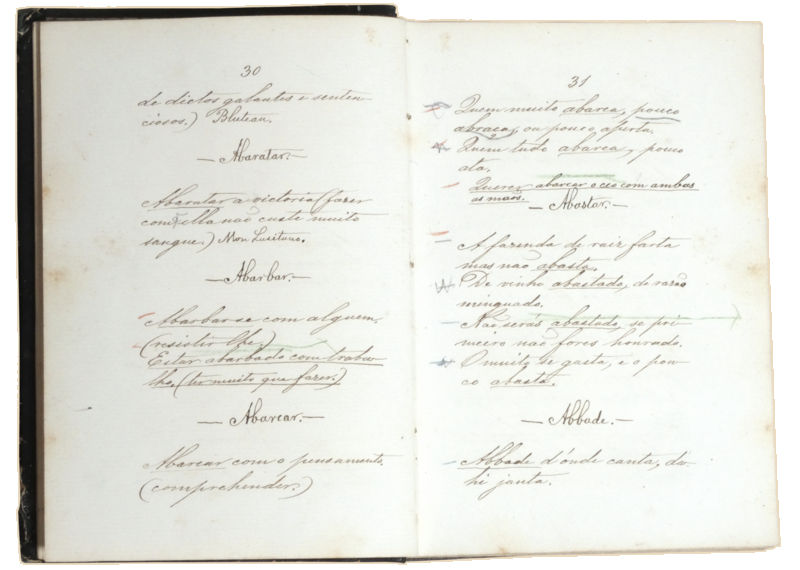 30
de dictos galantes e senten-
ciosos.) Bluteau.
— Abaratar. —
Abaratar a victoria (fazer
com q ella não custe muito
sangue.) Mon. Lusitana.
— Abarbar. —
Abarbar-se com alguem.
(resistir lhe.)
Estar abarbado com traba-
lho. (ter muito que fazer.)
— Abarcar. —
Abarcar com o pensamento.
(comprehender.)
31
Quem muito abarca, pouco
abraça, ou pouco aperta.
Quem tudo abarca, pouco
ata.
Querer abarcar o ceo com ambas
as mãos.
— Abastar. —
A fazenda de raiz farta
mas não abasta.
De vinho abastado, de razão
minguado.
Não serás abastado, se pri-
meiro não fores honrado.
O muito se gasta, e o pou-
co abasta.
— Abbade. —
Abbade d'onde canta, da-
hi janta.